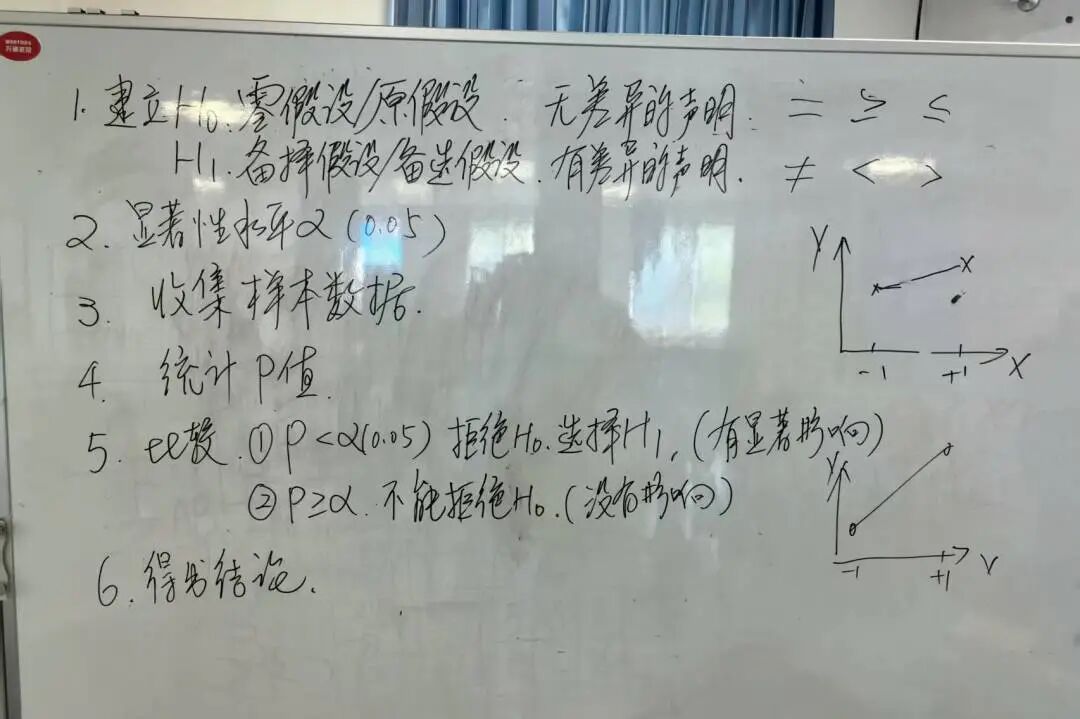 1. 建立H₀. 零假设/原假设. 无差异的声明. = ≥ ≤
H₁. 备择假设/备选假设. 有差异的声明. ≠ < >
2. 显著性水平α (0.05)
3. 收集样本数据.
4. 统计P值.
5. 比较. ① P<α(0.05) 拒绝H₀. 选择H₁. (有显著影响)
② P≥α. 不能拒绝H₀. (没有影响)
6. 得出结论.
Y
-1 +1 X
Y
-1 +1